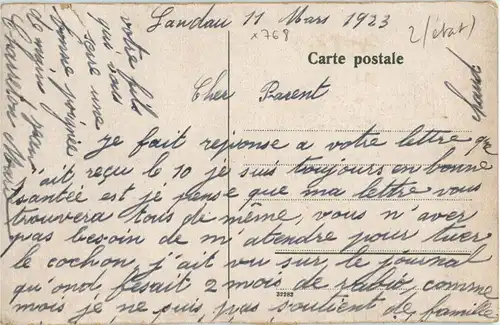 Landau 11 Mars 1923
x768
2/ (état)
Carte postale
Cher Parent
je fait reponse a votre lettre que
j'ait reçu le 10 je suis toujours en bonne
santée est je pense que ma lettre vous
trouvera tous de même, vous n'aver
pas besoin de m'atendre pour tuer
le cochon, j'ait vu sur le journal
qu'ond fesait 2 mois de radio, comme
37283
mois je ne suis pas soutient de famille
votre fils
qui vous
sere une
bonne poignée
de mains